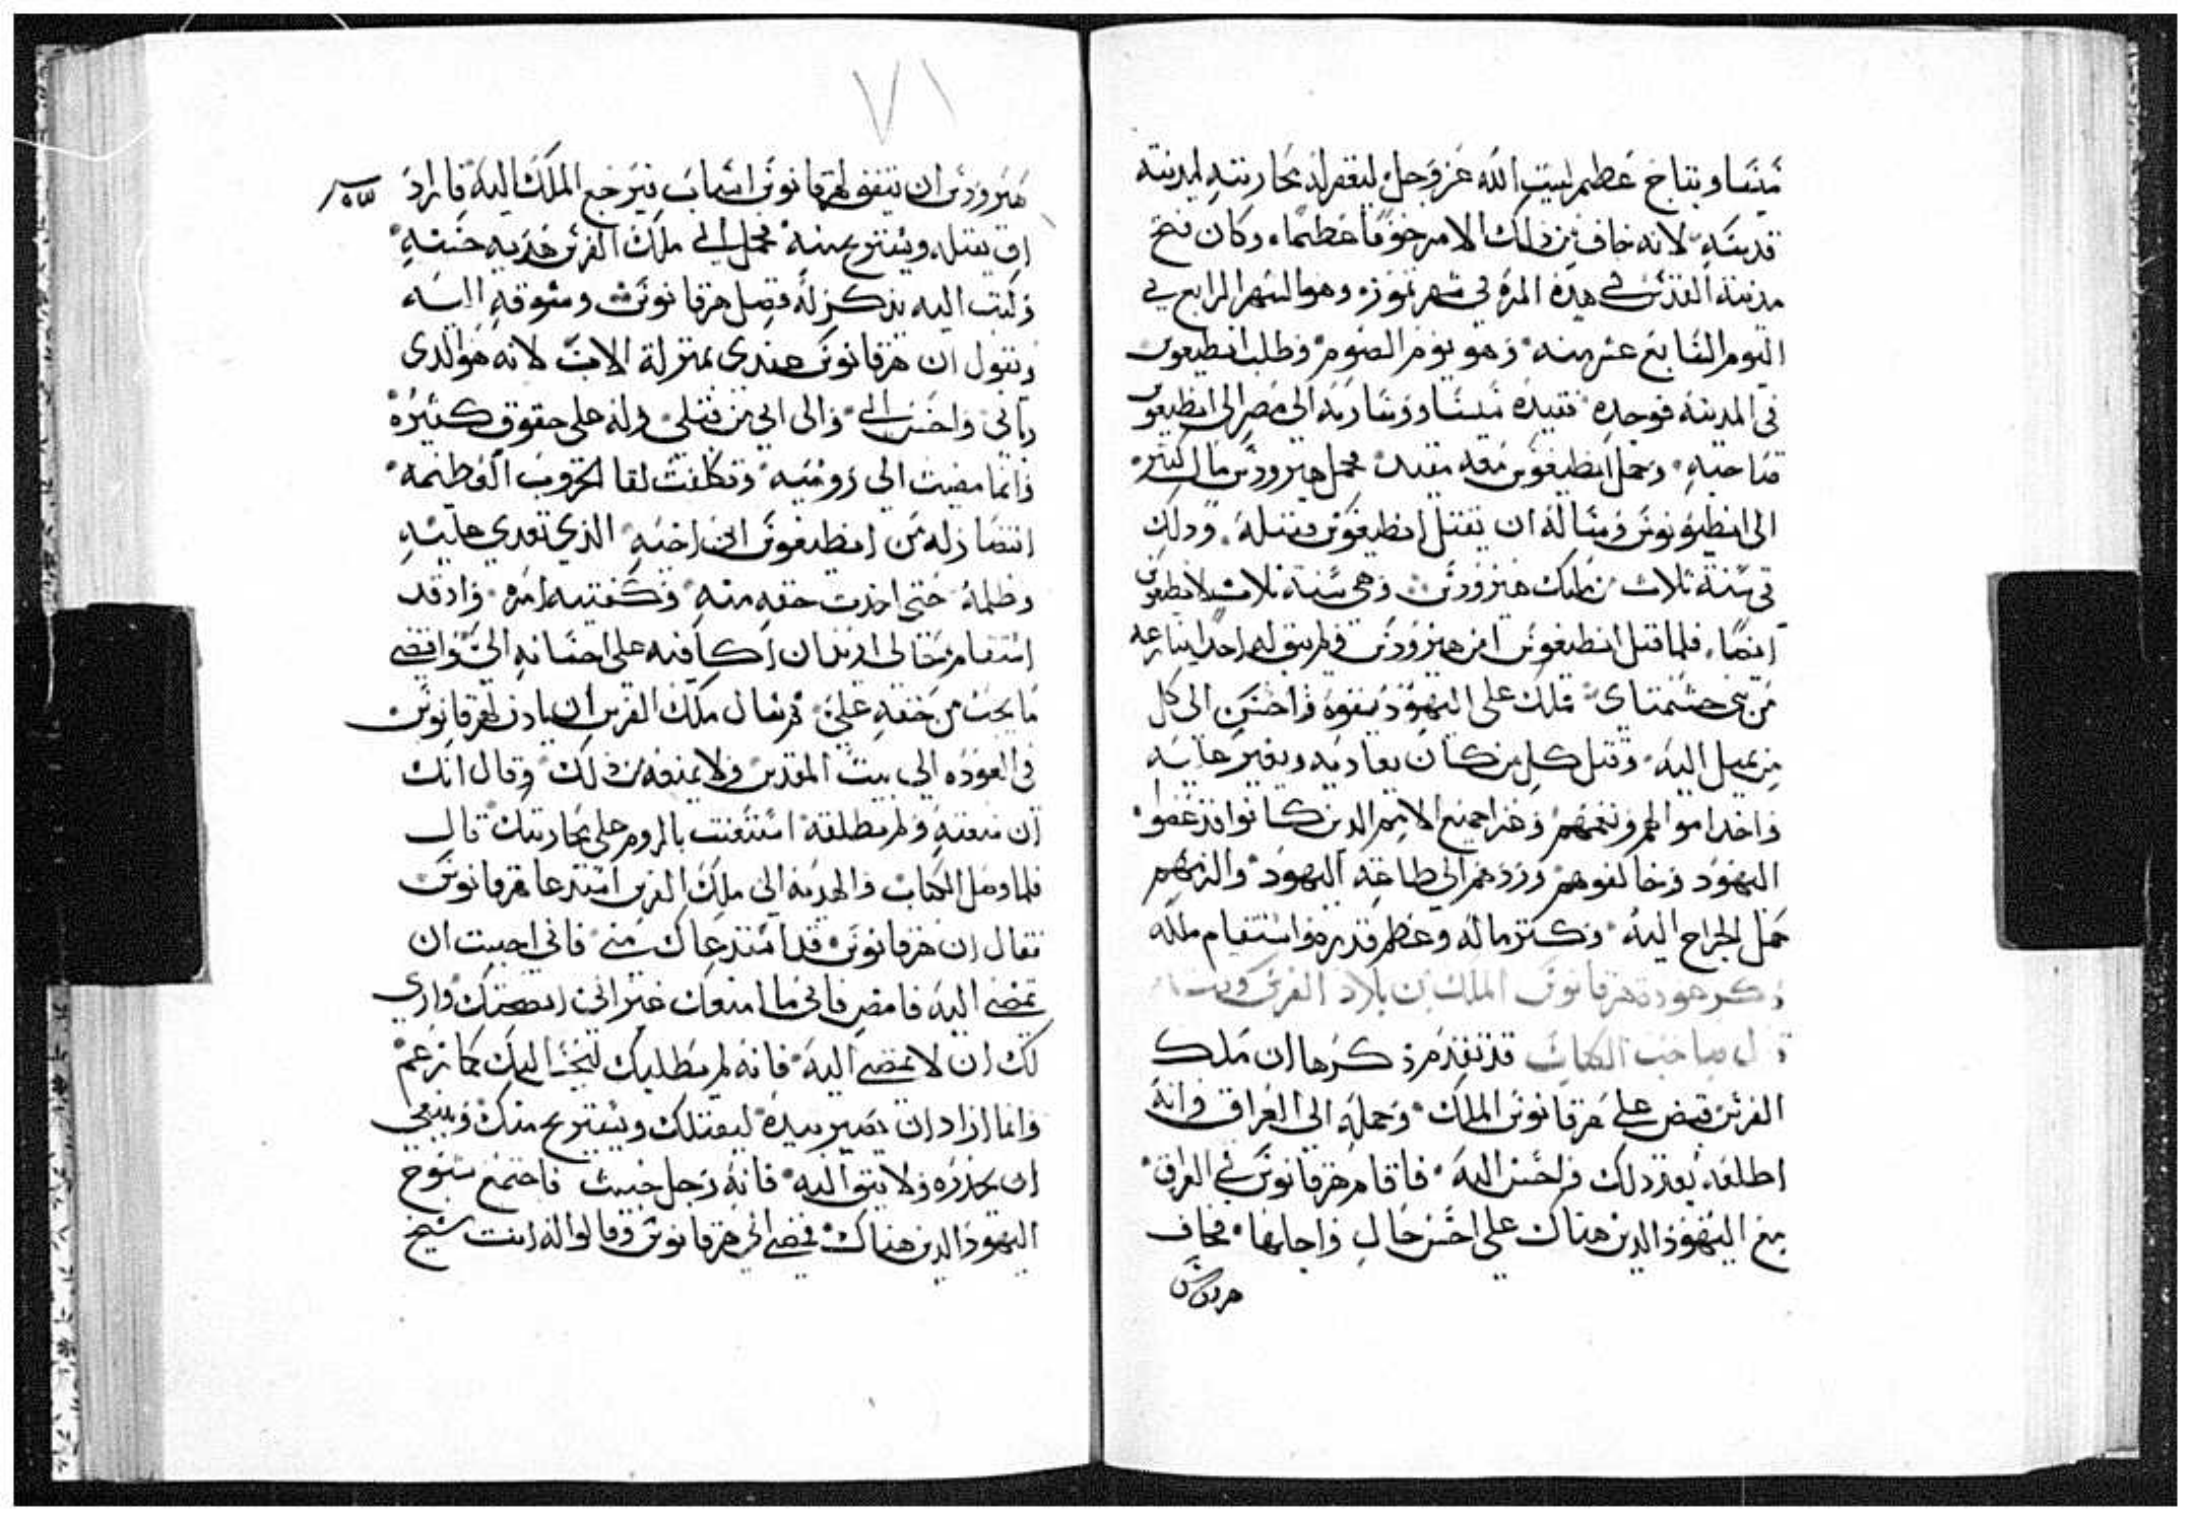 سيسا وبتاج عظيم لبيت الله عز وجل ليغفر له محاربته لمدينة
قدسه لانه خاف من ذلك الامر خوفا عظيما وكان فتح
مدينة القدس في هده المره في شهر تموز وهو الشهر الرابع في
اليوم السابع عشر منه وهو يوم الصوم وطلب انطيغوس
في المدينة فوجده فقيده سيسا وسار به الى مصر الى انطيغوس
صاحبه وحمل انطيغوس معه مقيد فحمل هيرودس مال كثير
الى انطيونيوس وساله ان يقتل انطيغوس فقتله ودلك
في سنة ثلاث من ملك هيرودس وهي سنة ثلاث لانطيغوس
ايضا فلما قتل انطيغوس امن هيرودس ولم يبق له احد ينازعه
من بني حشمناي فملك على اليهود بقوه واحسن الى كل
من يميل اليه وقتل كل من كان يعاديه ويغير عليه
واخد اموالهم ونعمهم وغزا جميع الامم الدين كانوا قد عصوا
اليهود وخالفوهم وردهم الى طاعة اليهود والزمهم
حمل الخراج اليه وكثر ماله وعظم قدره واستقام ملكه
ذكر عودة هرقانوس الملك من بلاد الفرس
قال صاحب الكتاب قد تقدم ذكرها ان ملك
الفرس قبض على هرقانوس الملك وحمله الى العراق وانه
اطلقه بعد دلك واحسن اليه فاقام هرقانوس في العراق
مع اليهود الدين هناك على احسن حال واجلها فخاف
هرودس
٧١
هيرودس ان يتفق لهرقانوس اسباب فيرجع الملك اليه فاراد
ان يقتله ويستريح منه فحمل الى ملك الفرس هديه حسنه
وكتب اليه يذكر له فضل هرقانوس وشوقه اليه
ويقول ان هرقانوس عندي بمنزلة الاب لانه هو الدي
رباني واحسن الي والى ابي من قبلي وله علي حقوق كثيره
وانما مضيت الى روميه وتكلفت لقا الحروب العظيمه
انتصارا له من انطيغوس ابن اخيه الذي تعدى عليه
وظلمه حتى اخدت حقه منه وكفيته امره واد قد
استقام حالي اريد ان اكافيه على احسانه الي واقضي
ما يجب من حقه علي وسال ملك الفرس ان ياذن لهرقانوس
في العوده الى بيت المقدس ولا يمنعه من ذلك وقال انك
ان منعته ولم تطلقه استعنت بالروم على محاربتك قال
فلما وصل الكتاب والهديه الى ملك الفرس استدعا هرقانوس
فقال ان هيرودس قد استدعاك مني فان احببت ان
تمضي اليه فامض فاني ما امنعك غير اني انصحك واري
لك ان لا تمضي اليه فانه لم يطلبك ليحسن اليك كما زعم
وانما اراد ان تصير بيده ليقتلك ويستريح منك وينبغي
ان تحذره ولا تثق اليه فانه رجل خبيث فاجتمع شيوخ
اليهود الدين هناك فمضى الى هرقانوس وقالوا له انت شيخ